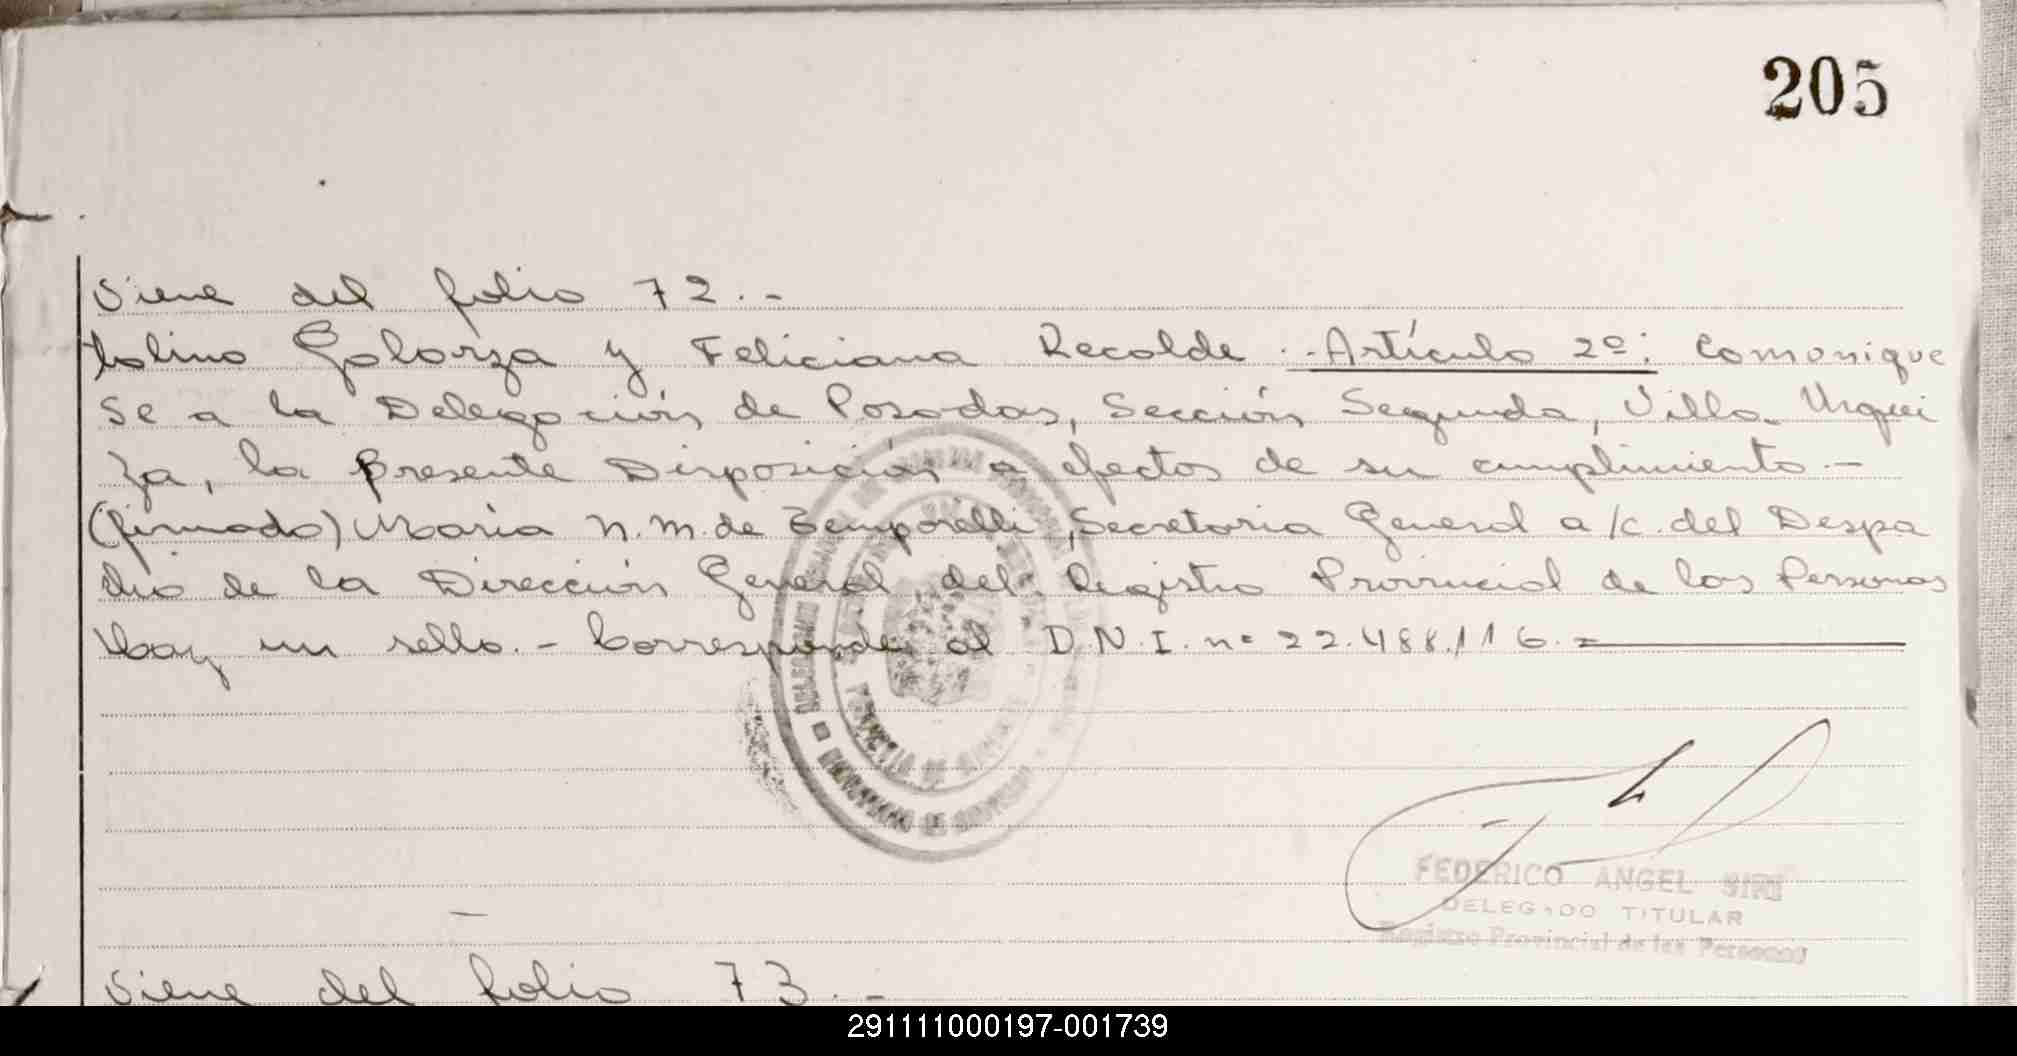 205
Viene del folio 72.-
tolino Galarza y Feliciana Recalde.-Artículo 2º: Comunique
se a la Delegación de Posadas, Sección Segunda, Villa Urqui
za, la presente Disposición a efectos de su cumplimiento.-
(firmado) María N. M. de Temporelli, Secretaria General a/c. del Despa
cho de la Dirección General del Registro Provincial de las Personas
Hay un sello.- Corresponde al D.N.I. nº 22.488.116.=
FEDERICO ANGEL SIRI
DELEGADO TITULAR
Registro Provincial de las Personas
Viene del folio 73.-
291111000197-001739